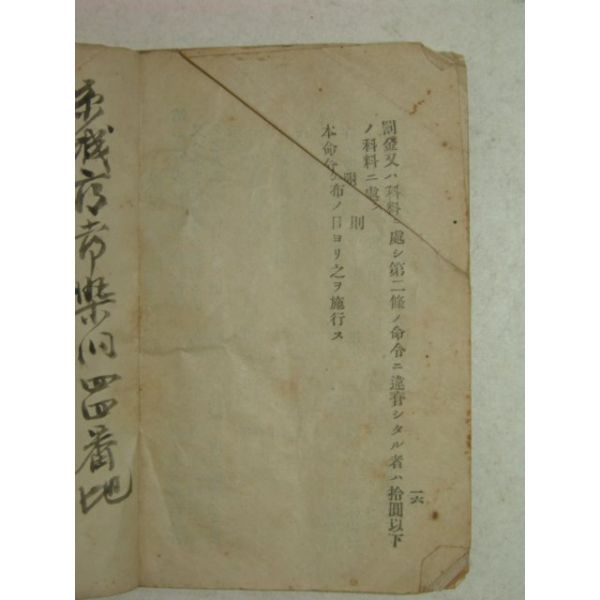 罰金又ハ科料ニ處シ第二條ノ命令ニ違背シタル者ハ拾圓以下
ノ科料ニ處ス
附則
本命令公布ノ日ヨリ之ヲ施行ス
一六
京城府帝樂洞四四番地